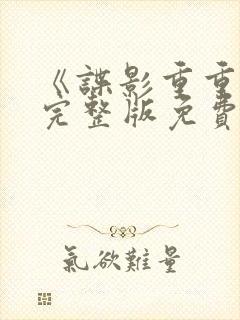 《諜影重重
完整版免費
氣欲難量